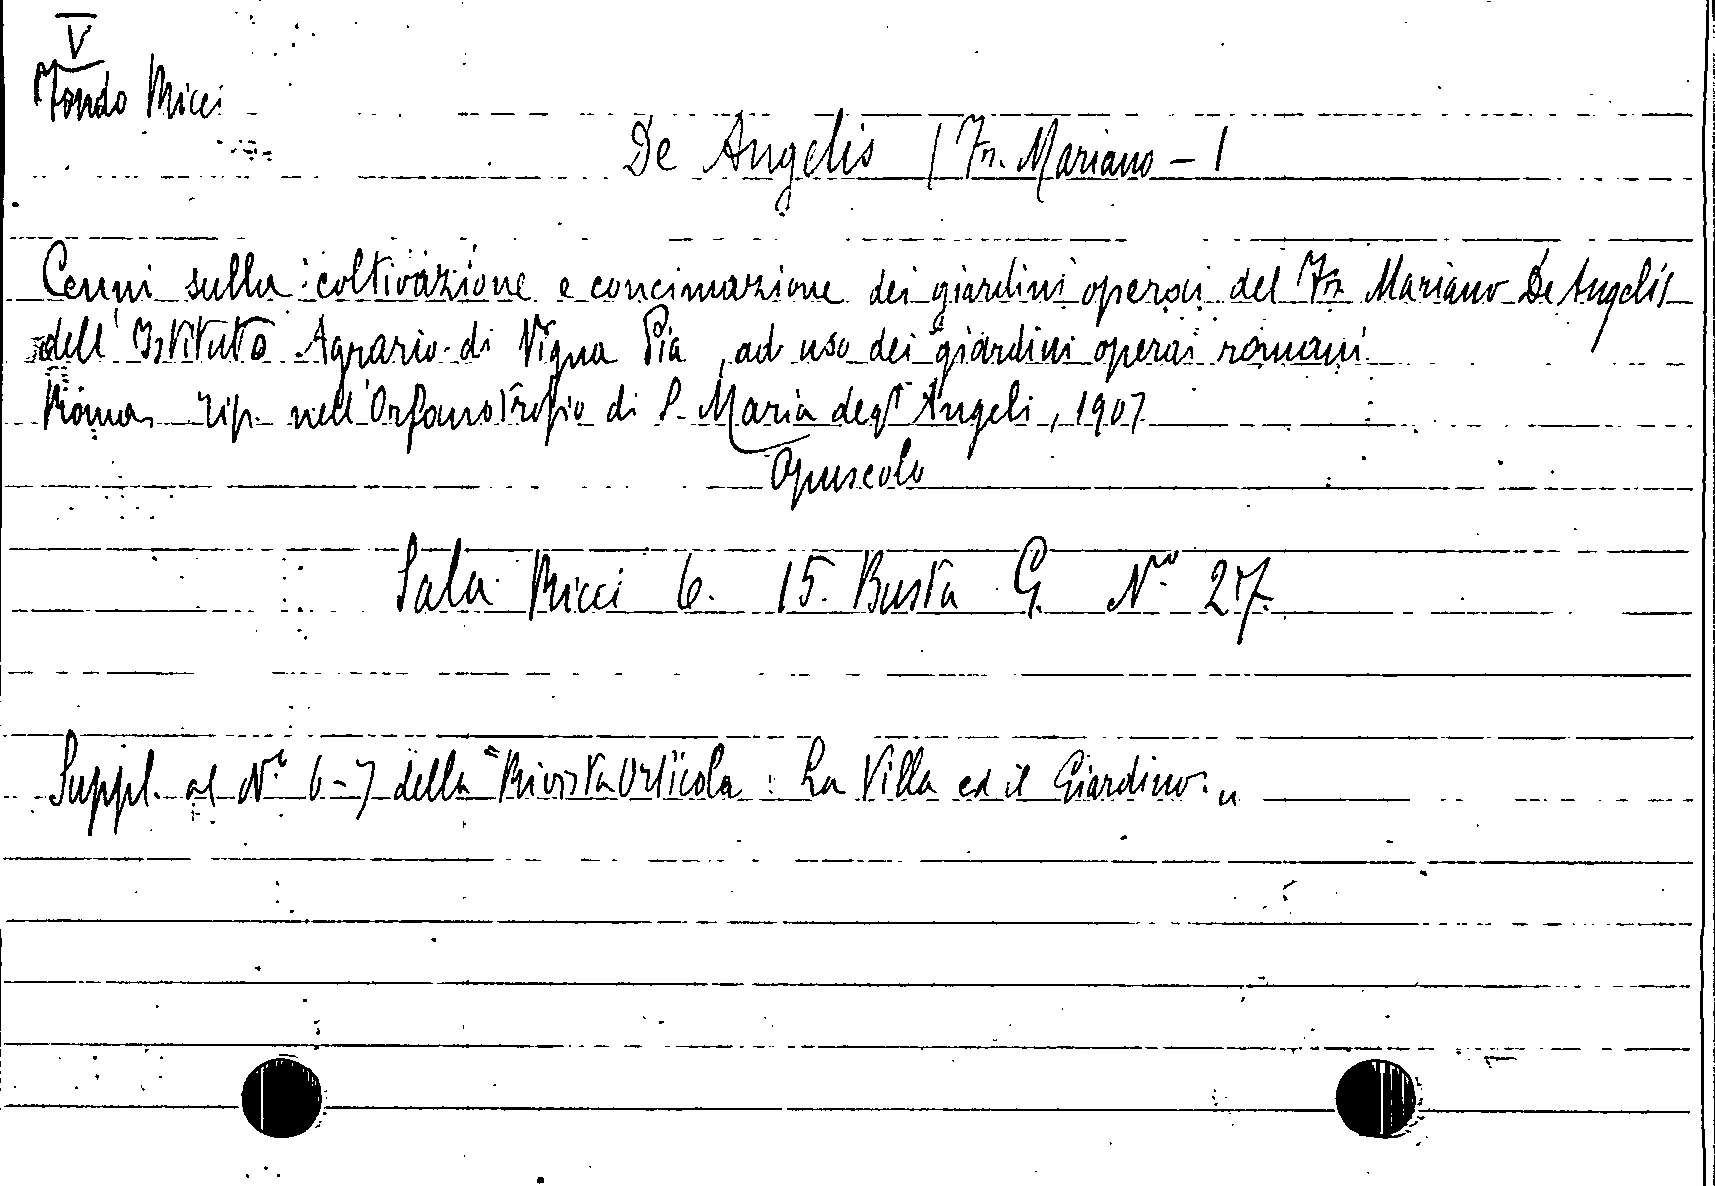 V
Fondo Ricci
De Angelis / Fr. Mariano - /
Cenni sulla coltivazione e concimazione dei giardini operai del Fr. Mariano De Angelis
dell'Istituto Agrario di Vigna Pia, ad uso dei giardini operai romani
Roma, Tip. nell'Orfanotrofio di S. Maria degl' Angeli, 1907
Opuscolo
Sala Ricci 6. 15. Busta G. N.° 27.
Suppl. al N.° 6-7 della "Rivista Orticola: La Villa ed il Giardino."